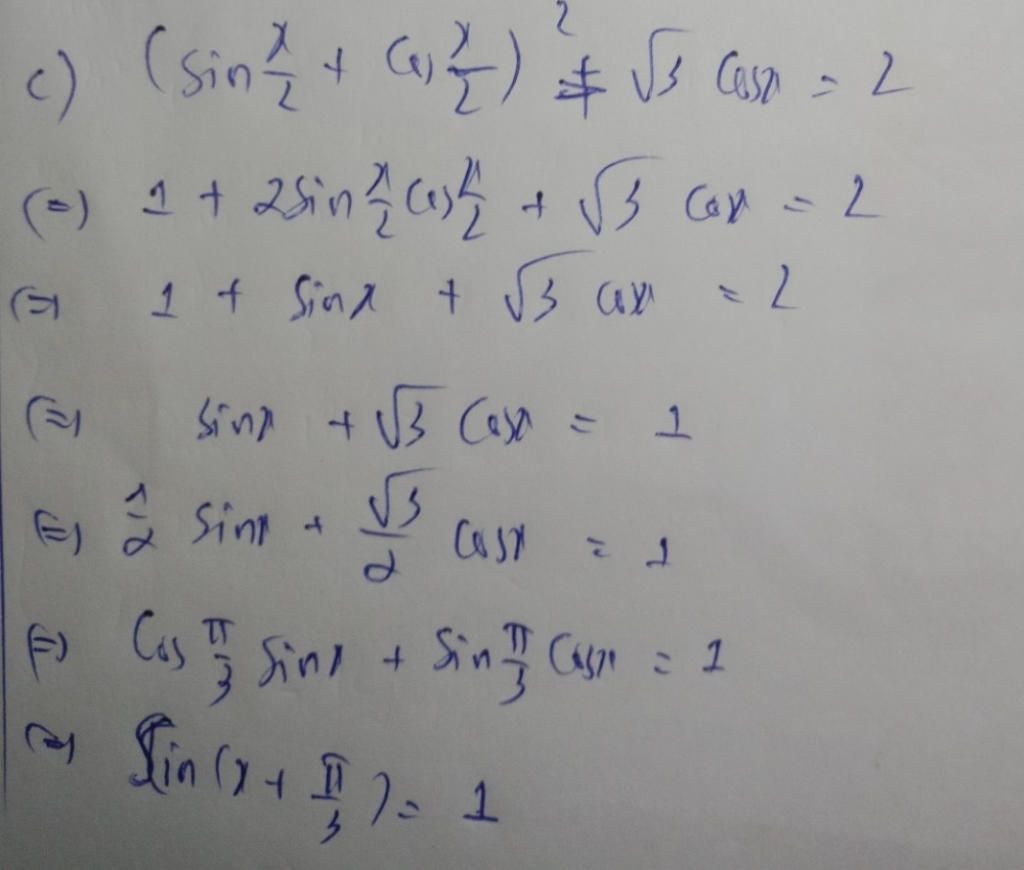 c) (sin x/2 + cos x/2)² + √3 cosx = 2
(=) 1 + 2sin x/2 cos x/2 + √3 cosx = 2
(=) 1 + sinx + √3 cosx = 2
(=) sinx + √3 cosx = 1
(=) 1/2 sinx + √3/2 cosx = 1
(=) cos π/3 sinx + sin π/3 cosx = 1
(=) sin(x + π/3) = 1